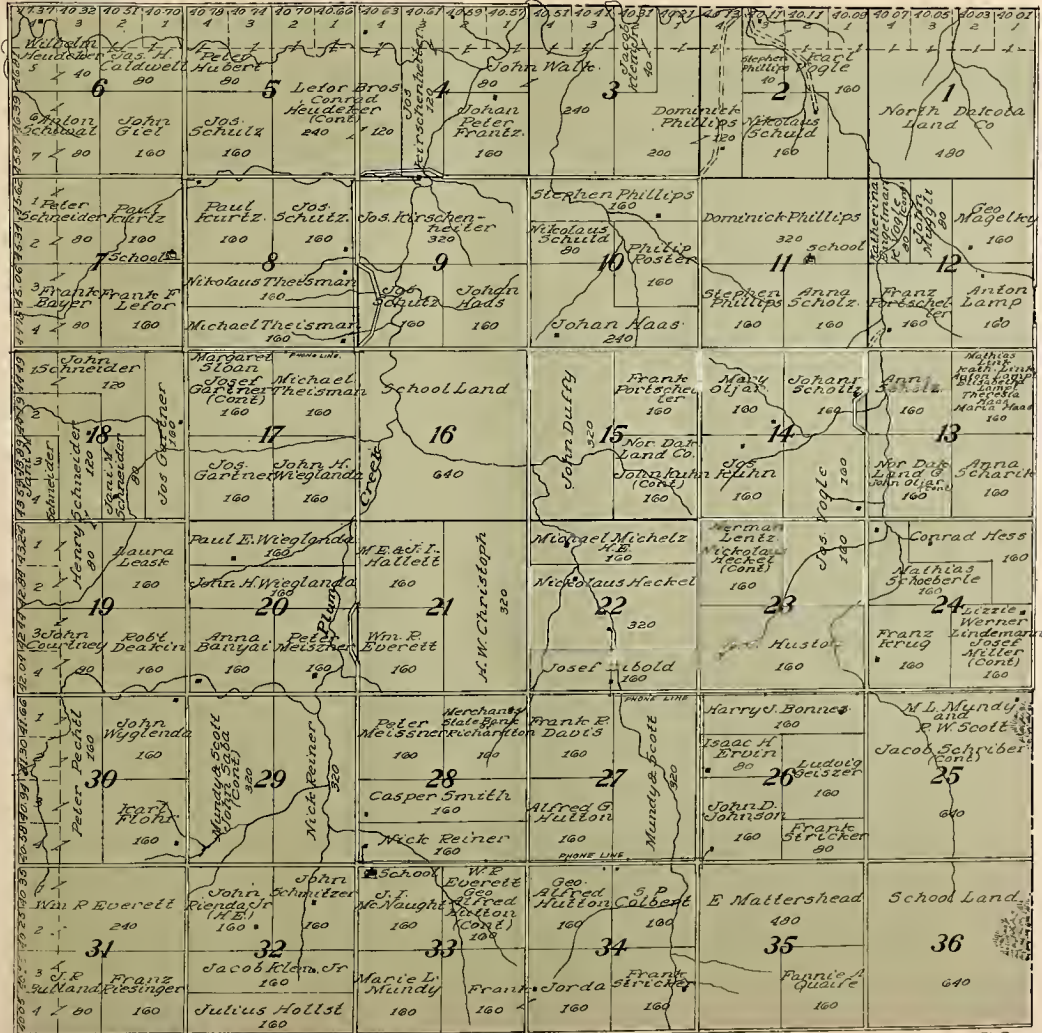 17.37 40.32 40.51 40.70 40.79 40.74 40.70 40.66 40.63 40.61 40.59 40.57 40.51 40.41 40.31 40.21 40.13 40.11 40.11 40.09 40.07 40.05 40.03 40.01
Wilhelm
Heudeker
40
Jas. H.
Caldwell
80
6
Anton
Schwal
80
John
Giel
160
Peter
Hubert
80
5
Lefor Bros
Conrad
Heudeker
(Cont)
240
Jos.
Schulz
160
Jos
Kirschenheiter
120
4
120
80
Johan
Peter
Frantz
160
John Walk
240
3
Jacob
Klem Jr
40
Dominick
Phillips
120
200
Stephen
Phillips
40
2
Karl
Vogle
160
Nikolaus
Schuld
160
1
North Dakota
Land Co
480
Peter
Schneider
80
Paul
Kurtz
160
School
7
Frank
Bayer
80
Frank F
Lefor
160
Paul
Kurtz
160
Jos.
Schutz
160
8
Nikolaus Theisman
160
Michael Theisman
160
Jos. Kirschen-
heiter
320
9
Jos
Schutz
160
Johan
Haas
160
Stephen Phillips
160
Nikolaus
Schuld
80
10
Philip
Roster
160
Johan Haas
240
Dominick Phillips
320
School
11
Stephen
Phillips
160
Anna
Scholz
160
Katherina
Bergelman
K Vogle
(Cont)
80
John
Muggli
80
Geo
Magelky
160
12
Franz
Portschel-
ler
160
Anton
Lamp
160
John
Schneider
120
18
Schneider
Henry Schneider
120
Jani M
Schneider
80
Jos Gartner
160
Margaret
Sloan
Josef
Gartner
(Cont)
160
PHONE LINE
Michael
Theisman
160
17
Jos.
Gartner
160
John H.
Wieglanda
160
School Land
16
640
Creek
John Duffy
320
Frank
Portschel
ler
160
15
Nor. Dak
Land Co.
John Kuhn
(Cont)
160
Mary
Oljar
160
Johans
Scholtz
160
14
Jos.
Kuhn
160
Jos. Vogle
160
Ann
Scholz
160
Mathias
Link
Kath. Link
Anton Lamp
Elisabeth
Lamp
Theresia
Haas
Maria Haas
160
13
Nor Dak
Land C
John Oljar
(Cont)
160
Anna
Scharik
160
80
Laura
Leask
160
19
John
Courtney
80
Robt
Deakin
160
Paul E. Wieglanda
160
John H. Wieglanda
160
20
Anna
Banyai
160
Peter
Meiszner
160
Plum
M E. & J. I.
Hallett
160
21
Wm. R
Everett
160
H. W. Christoph
320
Michael Michelz
H.E.
160
Nickolaus Heckel
22
320
Josef Libold
160
Herman
Lentz
Nickolaus
Heckel
(Cont)
160
160
23
Huston
160
Conrad Hess
160
Mathias
Schoeberle
160
24
Franz
Krug
160
Lizzie
Werner
Lindemann
Josef
Miller
(Cont)
160
Peter Pechtl
160
John
Wyglenda
160
30
Karl
Flohr
160
Mundy & Scott
John Saba
(Cont)
320
29
Nick Reiner
320
Peter
Meissner
160
Merchants
State Bank
Richardton
160
28
Casper Smith
160
Nick Reiner
160
Frank R.
Davis
160
PHONE LINE
27
Mundy & Scott
320
Alfred G
Hutton
160
PHONE LINE
Harry J. Bonnes
160
Isaac H
Ervin
80
26
Ludvig
Geiszer
160
John D.
Johnson
160
Frank
Stricker
80
M L. Mundy
and
R. W. Scott
Jacob Schriber
(Cont)
25
640
Wm R Everett
240
31
J. R
Sutland
80
Franz
Riesinger
160
John
Rienda Jr
(H.E.)
160
John
Schmitzer
160
32
Jacob Klem, Jr
160
Julius Hollst
160
School
J. I.
McNaught
160
W. R
Everett
Geo
Alfred
Hutton
(Cont)
160
33
Marie L
Mundy
160
Frank Jorda
160 160
Geo.
Alfred
Hutton
160
S. P
Colbert
160
34
Frank
Stricker
160
E Mattershead
480
35
Fannie A
Quaife
160
School Land
36
640